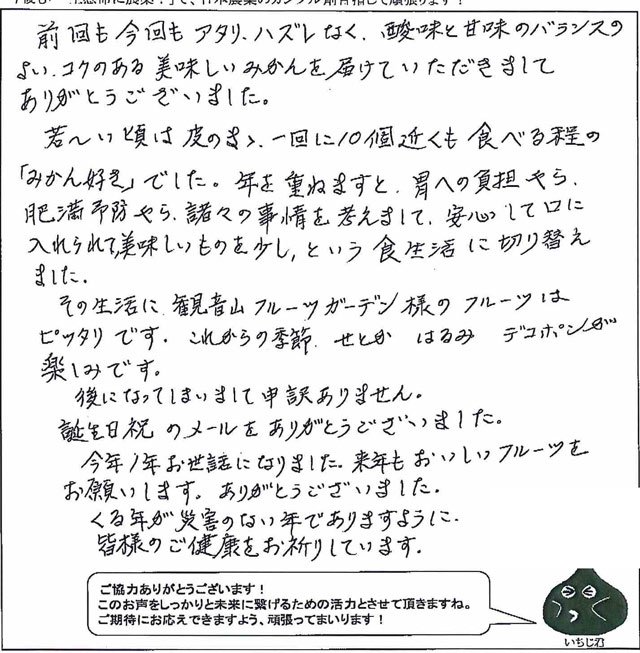 前回も今回もアタリ、ハズレなく、酸味と甘味のバランスの
よい、コクのある美味しいみかんを届けていただきまして
ありがとうございました。
若〜い頃は皮のまゝ、一回に10個近くも食べる程の
「みかん好き」でした。年を重ねますと、胃への負担やら、
肥満予防やら、諸々の事情を考えまして、安心して口に
入れられて、美味しいものを少し、という食生活に切り替え
ました。
その生活に、観音山フルーツガーデン様のフルーツは
ピッタリです。これからの季節、せとか はるみ デコポンが
楽しみです。
後になってしまいまして申訳ありません。
誕生日祝のメールをありがとうございました。
今年1年お世話になりました。来年もおいしいフルーツを
お願いします。ありがとうございました。
くる年が災害のない年でありますように。
皆様のご健康をお祈りしています。
ご協力ありがとうございます！
このお声をしっかりと未来に繋げるための活力とさせて頂きますね。
ご期待にお応えできますよう、頑張ってまいります！
いちじ君